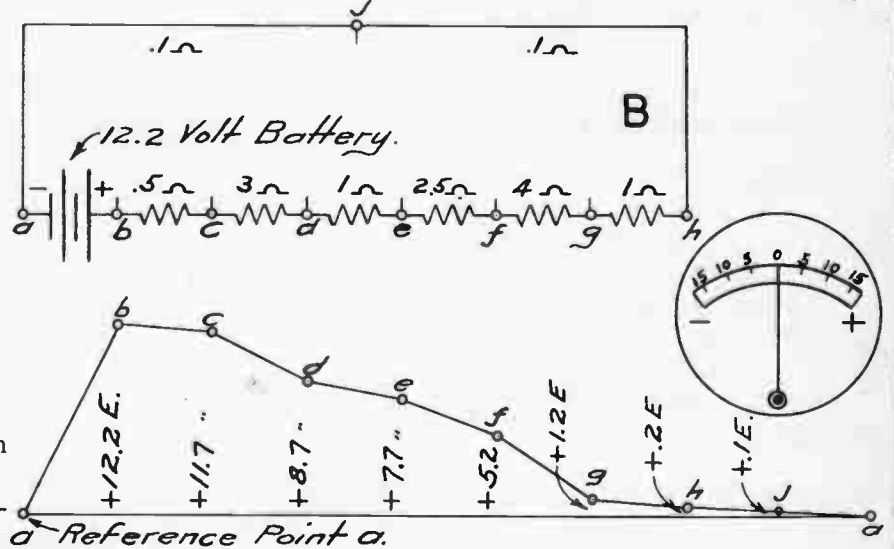 J
.1Ω .1Ω
B
12.2 Volt Battery.
- + .5Ω 3Ω 1Ω 2.5Ω 4Ω 1Ω
a b c d e f g h
15 10 5 0 5 10 15
- +
b c d e f g h J a
+12.2 E. +11.7 " +8.7 " +7.7 " +5.2 +1.2 E +.2 E +.1 E.
a Reference Point a.